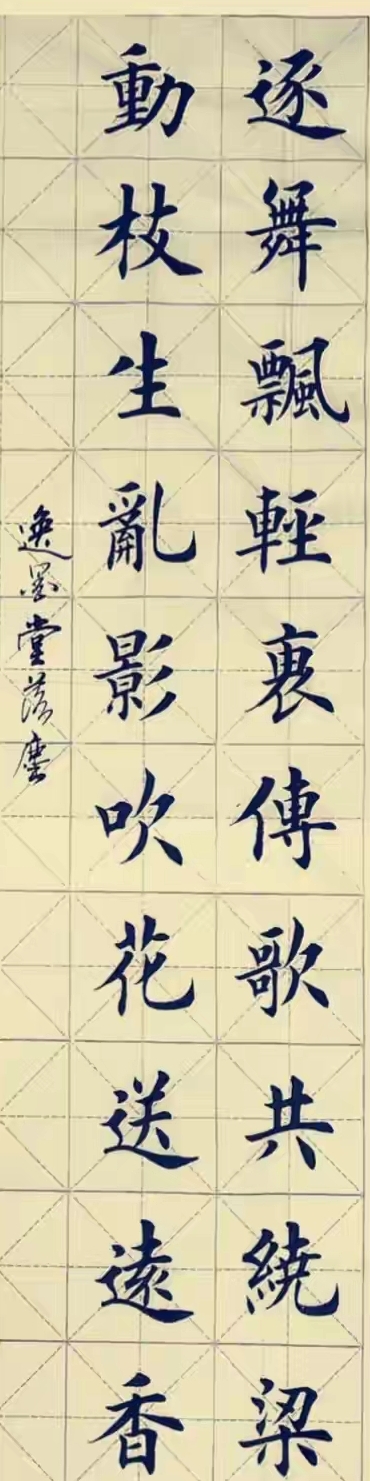 逐舞飄輕裒傳歌共繞梁
動枝生亂影吹花送遠香
逸墨堂落塵